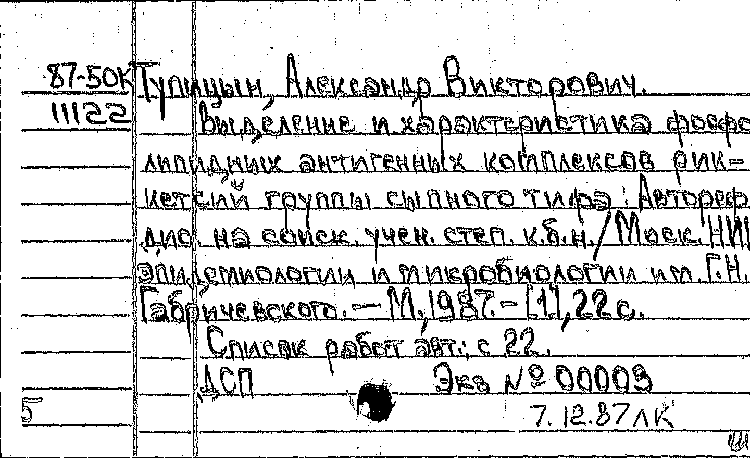 87-50к Тупицын, Александр Викторович.
11122
Выделение и характеристика фосфо
липидных антигенных комплексов рик-
кетсий группы сыпного тифа : Автореф
дис. на соиск. учен. степ. к.б.н. / Моск. НИИ
эпидемиологии и микробиологии им. Г.Н.
Габричевского. — М., 1987. - [1], 22 с.
Список работ авт.: с 22.
ДСП Экз № 00003
5
7.12.87 ЛК